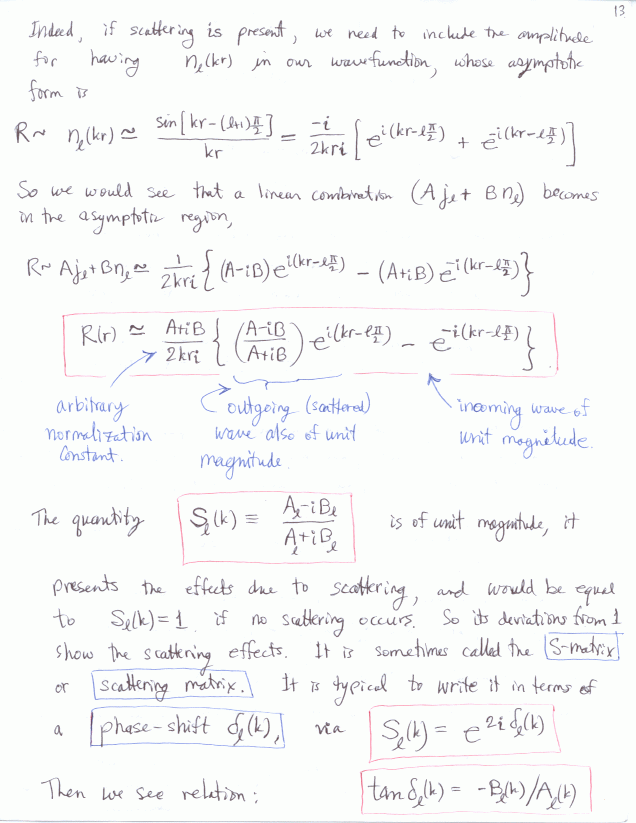 13
Indeed, if scattering is present, we need to include the amplitude
for having n_l(kr) in our wavefunction, whose asymptotic
form is
R ~ n_l(kr) ≃ sin[kr-(l+1)π/2] / kr = -i/2kri [ e^{i(kr-lπ/2)} + e^{-i(kr-lπ/2)} ]
So we would see that a linear combination (A j_l + B n_l) becomes
in the asymptotic region,
R ~ A j_l + B n_l ≃ 1/2kri { (A-iB) e^{i(kr-lπ/2)} - (A+iB) e^{-i(kr-lπ/2)} }
R(r) ≃ A+iB/2kri { (A-iB/A+iB) e^{i(kr-lπ/2)} - e^{-i(kr-lπ/2)} }
arbitrary
normalization
constant.
outgoing (scattered)
wave also of unit
magnitude.
incoming wave of
unit magnitude.
The quantity S_l(k) ≡ A_l-iB_l / A_l+iB_l is of unit magnitude, it
presents the effects due to scattering, and would be equal
to S_l(k) = 1 if no scattering occurs. So its deviations from 1
show the scattering effects. It is sometimes called the S-matrix
or scattering matrix. It is typical to write it in terms of
a phase-shift δ_l(k), via S_l(k) = e^{2i δ_l(k)}
Then we see relation: tan δ_l(k) = -B_l(k)/A_l(k)